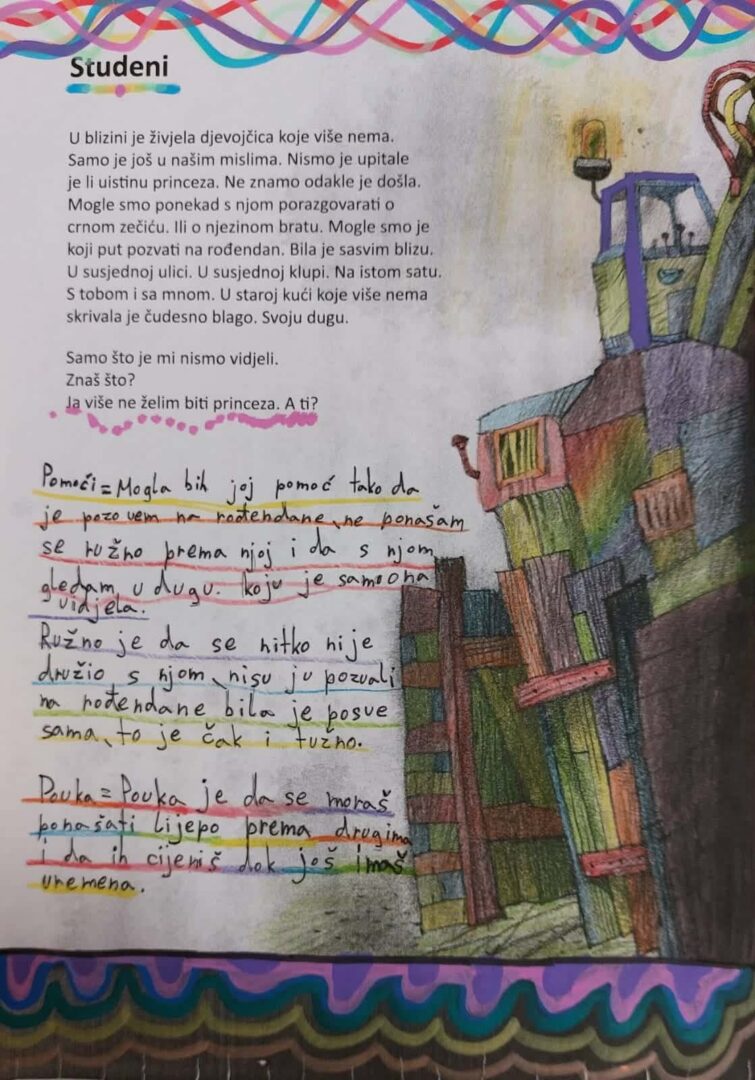 Studeni
U blizini je živjela djevojčica koje više nema.
Samo je još u našim mislima. Nismo je upitale
je li uistinu princeza. Ne znamo odakle je došla.
Mogle smo ponekad s njom porazgovarati o
crnom zečiću. Ili o njezinom bratu. Mogle smo je
koji put pozvati na rođendan. Bila je sasvim blizu.
U susjednoj ulici. U susjednoj klupi. Na istom satu.
S tobom i sa mnom. U staroj kući koje više nema
skrivala je čudesno blago. Svoju dugu.
Samo što je mi nismo vidjeli.
Znaš što?
Ja više ne želim biti princeza. A ti?
Pomoći = Mogla bih joj pomoć tako da
je pozovem na rođendane, ne ponašam
se ružno prema njoj i da s njom
gledam u dugu. koju je samo ona
vidjela.
Ružno je da se nitko nije
družio s njom, nisu ju pozvali
na rođendane bila je posve
sama, to je čak i tužno.
Pouka = Pouka je da se moraš
ponašati lijepo prema drugima
i da ih cijeniš dok još imaš
vremena.